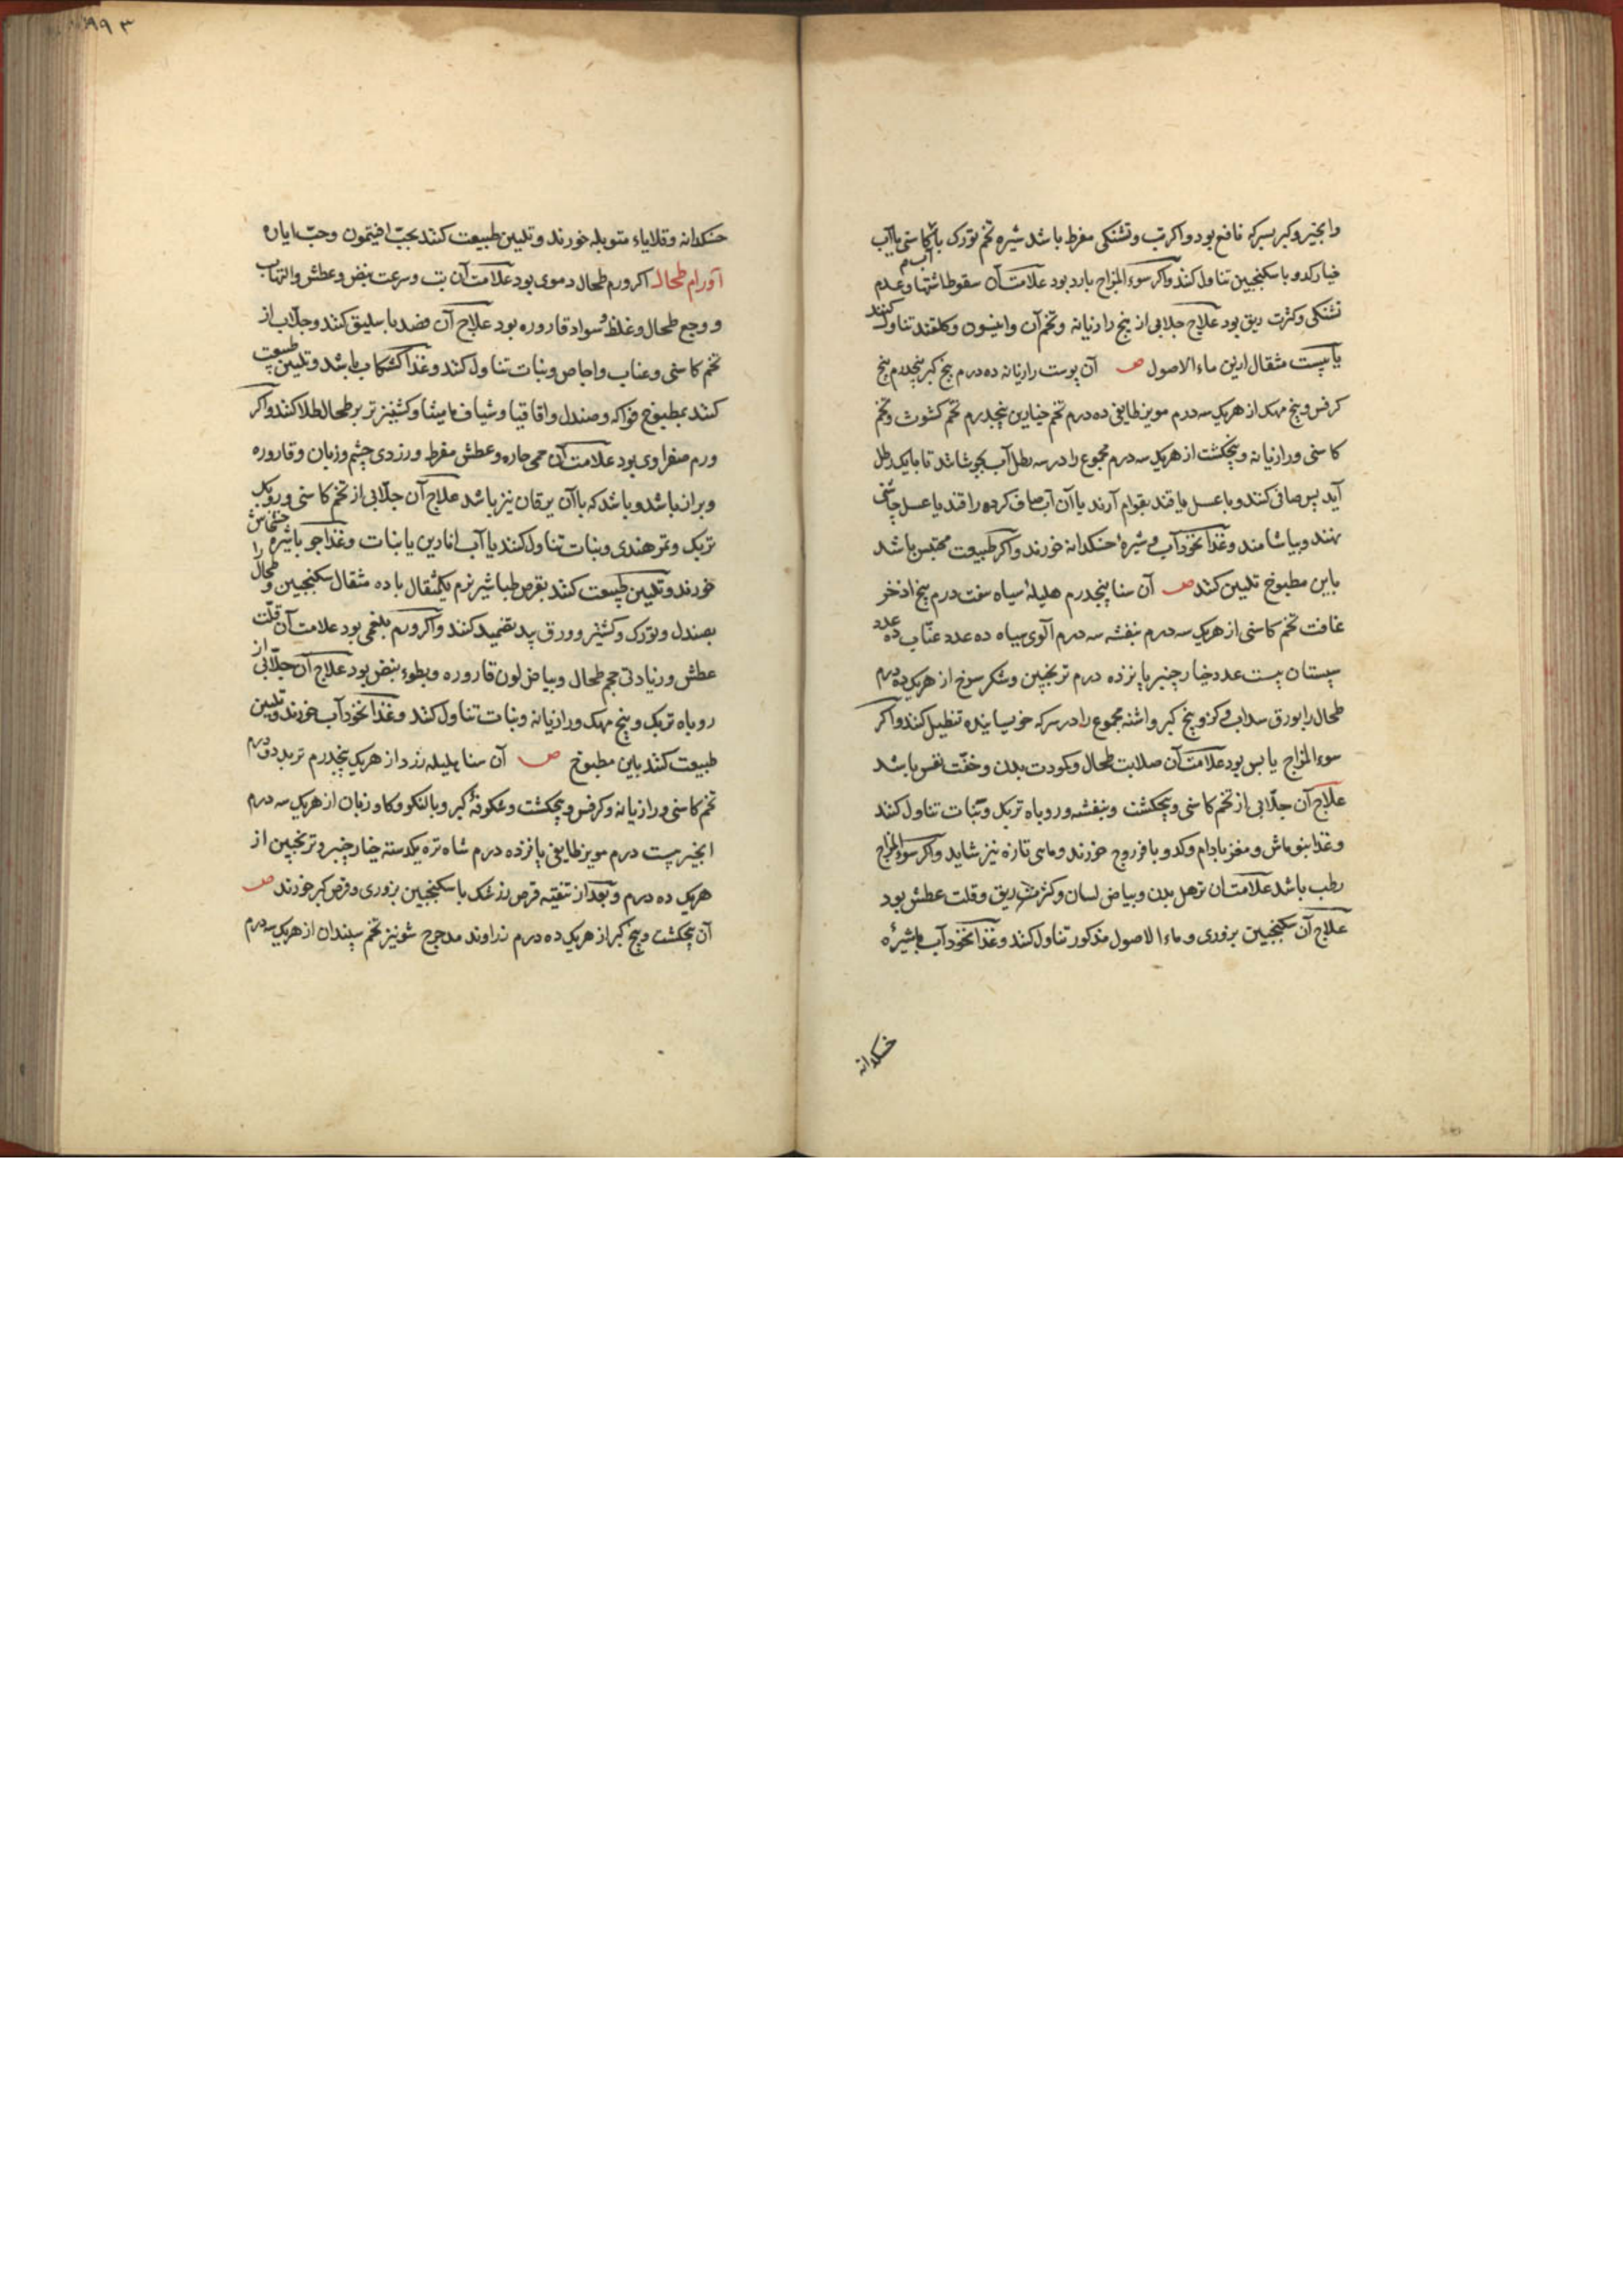 وابخیر وکبر بسرکه نافع بود واکر تب وتشنکی مفرط باشد شیره تخم تورک با کاسنی یا آب
خیار کدو با سکنجبین تناول کند واکر سوء المزاج بارد بود علامت آن سقوط اشتها وعدم
تشنکی وکثرت ریق بود علاج جلابی از بیخ رازیانه وتخم آن وانیسون وکلقند تناول کنند
یا بیست مثقال ازین ماء الاصول ص آن پوست رازیانه ده درم بیخ کبر پنجدرم بیخ
کرفس وبیخ مهک از هریک سه درم مویز طایفی ده درم تخم خیارین پنجدرم تخم کشوث وتخم
کاسنی ورازیانه وپنجکشت از هریک سه درم مجموع را در سه رطل آب بجوشانند تا بایک رطل
آید پس صافی کنند وبا عسل یا قند بقوام آرند یا آن آب صاف کرده را قند یا عسل چاشنی
نهند وبیاشامند وغذا نخود آب وشیرهٔ خسکدانه خورند واکر طبیعت محتبس باشد
باین مطبوخ تلیین کنند ص آن سنا پنجدرم هلیلهٔ سیاه هفت درم بیخ اذخر
غافت تخم کاسنی از هریک سه درم بنفشه سه درم آلوی سیاه ده عدد عنّاب ده عدد
سپستان بیست عدد خیارچنبر پانزده درم ترنجبین وشکر سرخ از هریک ده درم
طحال را بورق سداب وکزو بیخ کبر واشنه مجموع را در سرکه خویسانیده تنطیل کنند واکر
سوء المزاج یابس بود علامت آن صلابت طحال وکودت بدن وخفّت نفس باشد
علاج آن جلّابی از تخم کاسنی وپنجکشت وبنفشه وروباه تربک ونبات تناول کنند
وغذا بنوماش ومغز بادام وکدو با فروج خورند وماهی تازه نیز شاید واکر سوء المزاج
رطب باشد علامت آن ترهل بدن وبیاض لسان وکثرت ریق وقلت عطش بود
علاج آن سکنجبین بزوری وماء الاصول مذکور تناول کنند وغذا نخود آب باشیرهٔ
خسکدانه
۹۹۳
خسکدانه وقلایاء متوبله خورند وتلیین طبیعت کنند بحبّ افیتمون وحبّ ایاره
اورام طحال اکر ورم طحال دموی بود علامت آن تب وسرعت نبض وعطش والتهاب
ووجع طحال وغلظ وسواد قاروره بود علاج آن فصد باسلیق کنند وجلّاب از
تخم کاسنی وعناب واجاص ونبات تناول کند وغذا کشکاب باشد وتلیین طبیعت
کنند بمطبوخ فواکه وصندل واقاقیا وشیاف مامیثا وکشنیز تر بر طحال طلا کنند واکر
ورم صفراوی بود علامت آن حمی حاره وعطش مفرط وزردی چشم وزبان وقاروره
وبراز باشد وباشد که با آن یرقان نیز باشد علاج آن جلّابی از تخم کاسنی وروبک
تربک وتمر هندی ونبات تناول کنند یا آب انارین یا نبات وغذا جو باشیرهٔ خشخاش
خورند وتلیین طبیعت کنند بقرص طباشیر نرم یکمثقال با ده مثقال سکنجبین وطحال را
بصندل وتورک وکشنیز وورق بید تضمید کنند واکر ورم بلغمی بود علامت آن قلّت
عطش وزیادتی حجم طحال وبیاض لون قاروره وبطوء نبض بود علاج آن جلّابی از
روباه تربک وبیخ مهک ورازیانه ونبات تناول کنند وغذا نخود آب خورند وتلیین
طبیعت کنند باین مطبوخ ص آن سنا هلیله زرد از هریک پنجدرم تربد دو درم
تخم کاسنی ورازیانه وکرفس وپنجکشت وشکوفهٔ کبر وبالنکو وکاوزبان از هریک سه درم
انجیر بیست درم مویز طایفی پانزده درم شاه تره یکدسته خیارچنبر وترنجبین از
هریک ده درم وبعد از تنقیه قرص زرشک با سکنجبین بزوری وقرص کبر خورند ص
آن پنجکشت وبیخ کبر از هریک ده درم زراوند مدحرج شونیز تخم سپندان از هریک سه درم